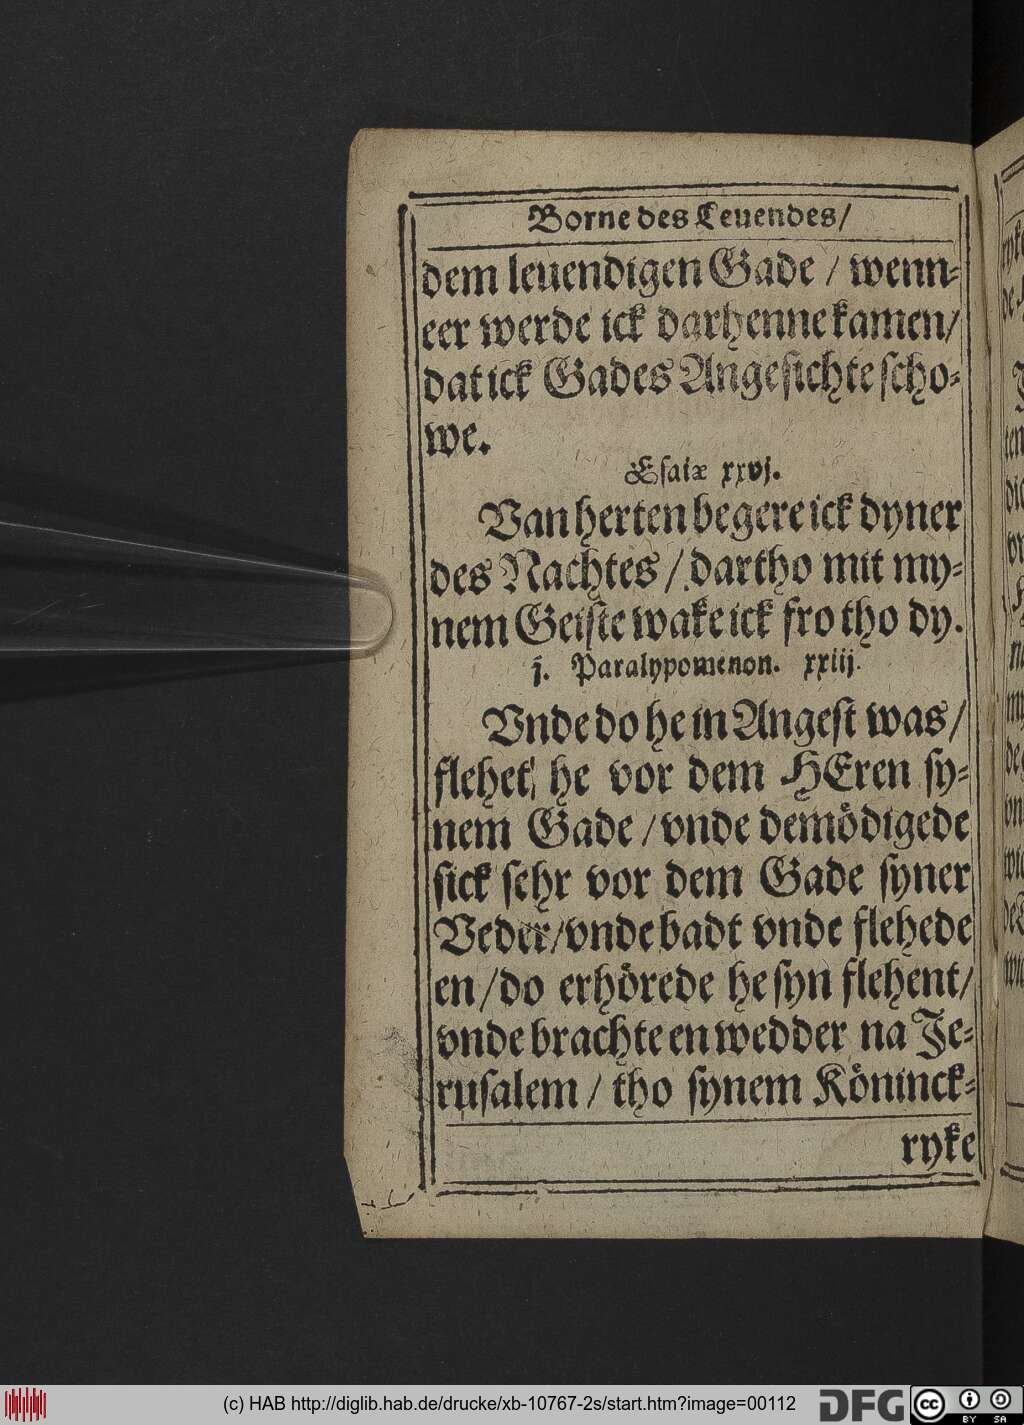 Borne des Leuendes/
dem leuendigen Gade / wenn⸗
eer werde ick darhenne kamen/
dat ick Gades Angesichte scho⸗
we.
Esaiæ xxvj.
Van herten begere ick dyner
des Nachtes / dartho mit my⸗
nem Geiste wake ick fro tho dy.
j. Paralypomenon. xxiij.
Vnde do he in Angest was/
flehet he vor dem HEren sy⸗
nem Gade / vnde demödigede
sick sehr vor dem Gade syner
Veder/vnde badt vnde flehede
en /do erhörede he syn flehent/
vnde brachte en wedder na Je⸗
rusalem / tho synem Köninck⸗
ryke
(c) HAB http://diglib.hab.de/drucke/xb-10767-2s/start.htm?image=00112
DFG
cc
BY SA